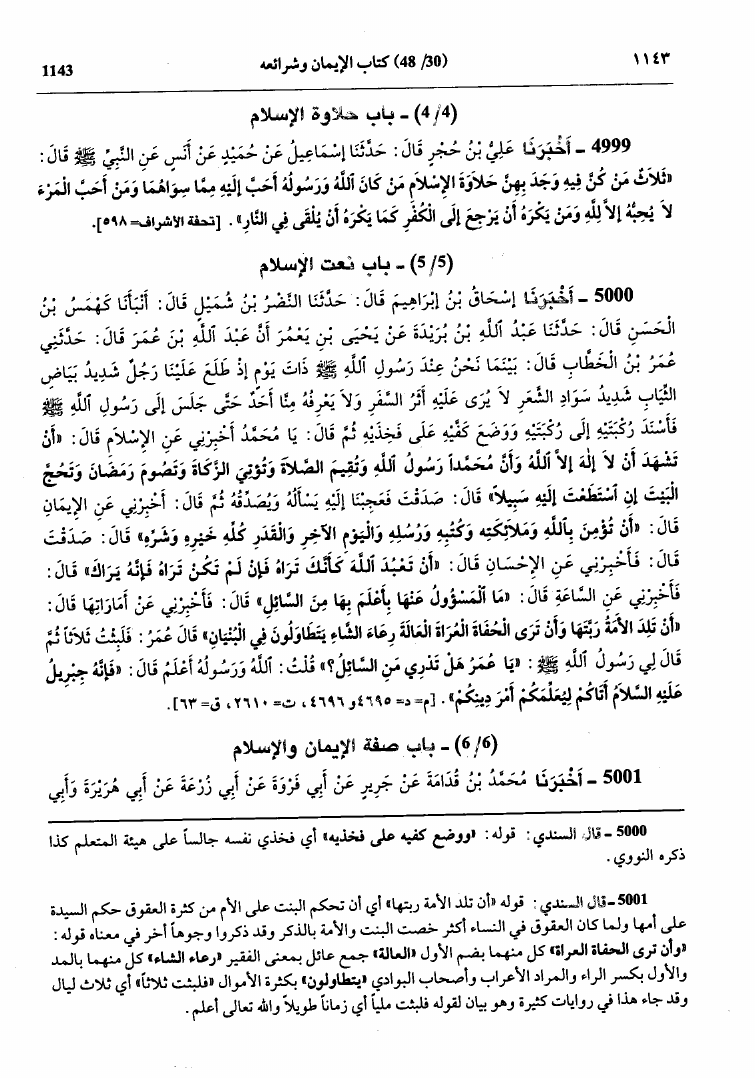 ١١٤٣ (48 /30) كتاب الإيمان وشرائعه 1143
(4/4) ـ باب حلاوة الإسلام
4999 ـ أَخْبَرَنَا عَلِيُّ بْنُ حُجْرٍ قَالَ: حَدَّثَنَا إِسْمَاعِيلُ عَنْ حُمَيْدٍ عَنْ أَنَسٍ عَنِ النَّبِيِّ ﷺ قَالَ:
«ثَلَاثٌ مَنْ كُنَّ فِيهِ وَجَدَ بِهِنَّ حَلَاوَةَ الإِسْلَامِ مَنْ كَانَ اللَّهُ وَرَسُولُهُ أَحَبَّ إِلَيْهِ مِمَّا سِوَاهُمَا وَمَنْ أَحَبَّ الْمَرْءَ
لَا يُحِبُّهُ إِلاَّ لِلَّهِ وَمَنْ يَكْرَهُ أَنْ يَرْجِعَ إِلَى الْكُفْرِ كَمَا يَكْرَهُ أَنْ يُلْقَى فِي النَّارِ». [تحفة الأشراف= ٥٩٨].
(5/5) ـ باب نعت الإسلام
5000 ـ أَخْبَرَنَا إِسْحَاقُ بْنُ إِبْرَاهِيمَ قَالَ: حَدَّثَنَا النَّضْرُ بْنُ شُمَيْلٍ قَالَ: أَنْبَأَنَا كَهْمَسُ بْنُ
الْحَسَنِ قَالَ: حَدَّثَنَا عَبْدُ اللَّهِ بْنُ بُرَيْدَةَ عَنْ يَحْيَى بْنِ يَعْمُرَ أَنَّ عَبْدَ اللَّهِ بْنَ عُمَرَ قَالَ: حَدَّثَنِي
عُمَرُ بْنُ الْخَطَّابِ قَالَ: بَيْنَمَا نَحْنُ عِنْدَ رَسُولِ اللَّهِ ﷺ ذَاتَ يَوْمٍ إِذْ طَلَعَ عَلَيْنَا رَجُلٌ شَدِيدُ بَيَاضِ
الثِّيَابِ شَدِيدُ سَوَادِ الشَّعَرِ لَا يُرَى عَلَيْهِ أَثَرُ السَّفَرِ وَلَا يَعْرِفُهُ مِنَّا أَحَدٌ حَتَّى جَلَسَ إِلَى رَسُولِ اللَّهِ ﷺ
فَأَسْنَدَ رُكْبَتَيْهِ إِلَى رُكْبَتَيْهِ وَوَضَعَ كَفَّيْهِ عَلَى فَخِذَيْهِ ثُمَّ قَالَ: يَا مُحَمَّدُ أَخْبِرْنِي عَنِ الإِسْلَامِ قَالَ: «أَنْ
تَشْهَدَ أَنْ لَا إِلٰهَ إِلاَّ اللَّهُ وَأَنَّ مُحَمَّداً رَسُولُ اللَّهِ وَتُقِيمَ الصَّلَاةَ وَتُؤْتِيَ الزَّكَاةَ وَتَصُومَ رَمَضَانَ وَتَحُجَّ
الْبَيْتَ إِنِ اسْتَطَعْتَ إِلَيْهِ سَبِيلاً» قَالَ: صَدَقْتَ فَعَجِبْنَا إِلَيْهِ يَسْأَلُهُ وَيُصَدِّقُهُ ثُمَّ قَالَ: أَخْبِرْنِي عَنِ الإِيمَانِ
قَالَ: «أَنْ تُؤْمِنَ بِاللَّهِ وَمَلَائِكَتِهِ وَكُتُبِهِ وَرُسُلِهِ وَالْيَوْمِ الآخِرِ وَالْقَدَرِ كُلِّهِ خَيْرِهِ وَشَرِّهِ» قَالَ: صَدَقْتَ
قَالَ: فَأَخْبِرْنِي عَنِ الإِحْسَانِ قَالَ: «أَنْ تَعْبُدَ اللَّهَ كَأَنَّكَ تَرَاهُ فَإِنْ لَمْ تَكُنْ تَرَاهُ فَإِنَّهُ يَرَاكَ» قَالَ:
فَأَخْبِرْنِي عَنِ السَّاعَةِ قَالَ: «مَا الْمَسْؤُولُ عَنْهَا بِأَعْلَمَ بِهَا مِنَ السَّائِلِ» قَالَ: فَأَخْبِرْنِي عَنْ أَمَارَاتِهَا قَالَ:
«أَنْ تَلِدَ الأَمَةُ رَبَّتَهَا وَأَنْ تَرَى الْحُفَاةَ الْعُرَاةَ الْعَالَةَ رِعَاءَ الشَّاءِ يَتَطَاوَلُونَ فِي الْبُنْيَانِ» قَالَ عُمَرُ: فَلَبِثْتُ ثَلَاثاً ثُمَّ
قَالَ لِي رَسُولُ اللَّهِ ﷺ: «يَا عُمَرُ هَلْ تَدْرِي مَنِ السَّائِلُ؟» قُلْتُ: اللَّهُ وَرَسُولُهُ أَعْلَمُ قَالَ: «فَإِنَّهُ جِبْرِيلُ
عَلَيْهِ السَّلَامُ أَتَاكُمْ لِيُعَلِّمَكُمْ أَمْرَ دِينِكُمْ». [م= د= ٤٦٩٥ و ٤٦٩٦، ت= ٢٦١٠، ق= ٦٣].
(6/6) ـ باب صفة الإيمان والإسلام
5001 ـ أَخْبَرَنَا مُحَمَّدُ بْنُ قُدَامَةَ عَنْ جَرِيرٍ عَنْ أَبِي فَرْوَةَ عَنْ أَبِي زُرْعَةَ عَنْ أَبِي هُرَيْرَةَ وَأَبِي
5000 ـ قال السندي: قوله: «ووضع كفيه على فخذيه» أي فخذي نفسه جالساً على هيئة المتعلم كذا
ذكره النووي.
5001 ـ قال السندي: قوله «أن تلد الأمة ربتها» أي أن تحكم البنت على الأم من كثرة العقوق حكم السيدة
على أمها ولما كان العقوق في النساء أكثر خصت البنت والأمة بالذكر وقد ذكروا وجوهاً أخر في معناه قوله:
«وأن ترى الحفاة العراة» كل منهما بضم الأول «العالة» جمع عائل بمعنى الفقير «رعاء الشاء» كل منهما بالمد
والأول بكسر الراء والمراد الأعراب وأصحاب البوادي «يتطاولون» بكثرة الأموال «فلبثت ثلاثاً» أي ثلاث ليال
وقد جاء هذا في روايات كثيرة وهو بيان لقوله فلبثت ملياً أي زماناً طويلاً والله تعالى أعلم.